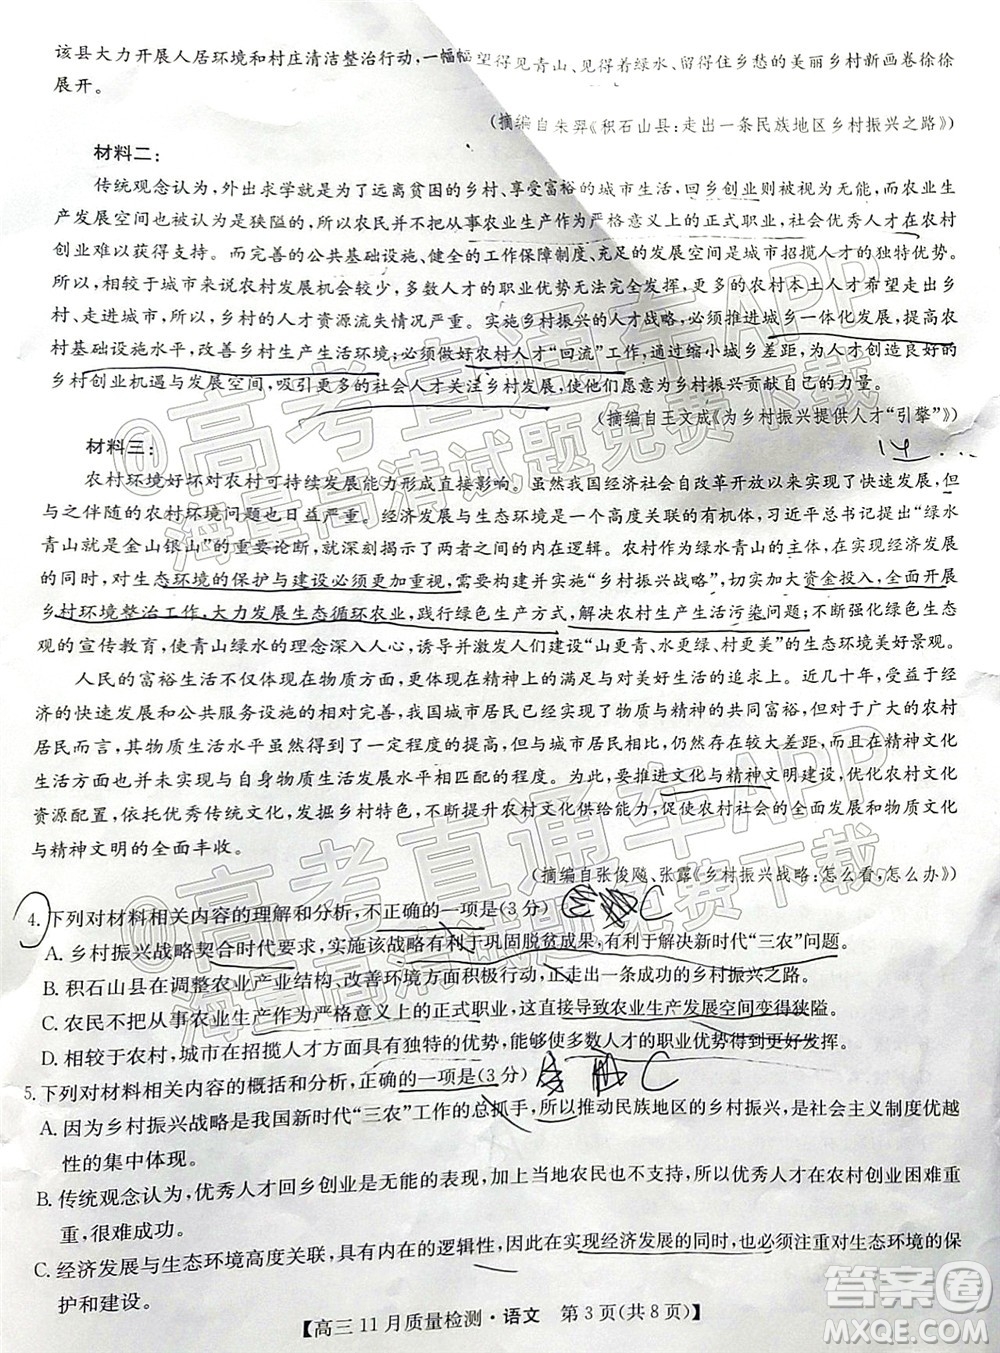 该县大力开展人居环境和村庄清洁整治行动,一幅幅望得见青山、见得着绿水、留得住乡愁的美丽乡村新画卷徐徐
展开。
(摘编自朱羿《积石山县:走出一条民族地区乡村振兴之路》)
材料二:
传统观念认为,外出求学就是为了远离贫困的乡村、享受富裕的城市生活,回乡创业则被视为无能,而农业生
产发展空间也是狭隘的,所以农民并不把从事农业生产作为严格意义上的正式职业,社会优秀人才在农村
创业难以获得支持。而完善的公共基础设施、健全的工作保障制度、充足的发展空间是城市招揽人才的独特优势。
所以,相较于城市来说农村发展机会较少,多数人才的职业优势无法完全得到发挥,农村本土人才希望走出乡
村、走进城市,所以,乡村的人才资源流失情况严重。实施乡村振兴的人才战略,必须推进城乡一体化发展,提高农
村基础设施水平,改善乡村生产生活环境;必须做好农村人才“回流”工作,通过缩小城乡差距,为人才创造良好的
乡村创业机遇与发展空间,吸引更多的社会人才关注乡村发展,使他们愿意为乡村振兴贡献自己的力量。
(摘编自王文成《为乡村振兴提供人才“引擎”》)
材料三:
农村环境好坏对农村可持续发展能力形成直接影响。虽然我国经济社会自改革开放以来实现了快速发展,但
与之伴随的农村环境问题也日益严重。经济发展与生态环境是一个高度关联的有机体,习近平总书记提出“绿水
青山就是金山银山”的重要论断,就是阐明了两者之间的内在逻辑。农村作为绿水青山的主体,在实现经济发展
的同时,对生态环境的保护与建设必须更加重视,需要结合“乡村振兴战略”,切实加大资金投入,全面开展
乡村环境整治工作,大力发展生态循环农业,践行绿色生产方式,解决农村生产生活污染问题;不断强化绿色生态
观的宣传教育,使青山绿水的理念深入人心,构建农村居民与生态环境友好关系,打造“山更青、水更绿、村更美”的生态环境美好景观。
人民的富裕生活不仅体现在物质方面,更体现在精神上的满足与对美好生活的追求上。近几十年,伴随经
济的快速发展和公共服务设施的相对完善,我国城市居民已经实现了物质与精神的共同富裕,而对于广大的农村
居民而言,其物质生活水平虽然得到了一定程度的提高,但与城市居民相比,仍然存在较大差距,而在精神文化
生活方面也并未实现与自身物质生活发展水平相匹配的程度。因此,要推进文化与精神文明建设,优化农村文化
资源配置,依托优秀传统文化,发掘乡村特色,不断提升农村文化供给能力,促使农村社会的全面发展和物质文明
与精神文明的全面丰收。
(摘编自张俊飚、张露《乡村振兴战略:怎么看,怎么办》)
4. 下列对材料相关内容的理解和分析,不正确的一项是(3分) C
A. 乡村振兴战略契合时代要求,实施该战略有利于巩固脱贫成果,有利于解决新时代“三农”问题。
B. 积石山县在调整农业产业结构、改善环境方面积极行动,正走出一条成功的乡村振兴之路。
C. 农民不把从事农业生产作为严格意义上的正式职业,这直接导致农业生产发展空间变得狭隘。
D. 相较于农村,城市在招揽人才方面具有独特优势,能够使多数人才的职业优势得到更好发挥。
5. 下列对材料相关内容的概括和分析,正确的一项是(3分) C
A. 因为乡村振兴战略是我国新时代“三农”工作的总抓手,所以推动民族地区的乡村振兴,是社会主义制度优越
性的集中体现。
B. 传统观念认为,优秀人才回乡创业是无能的表现,加上当地农民也不支持,所以这些人才在农村创业困难重
重,很难成功。
C. 经济发展与生态环境高度关联,具有内在的逻辑性,所以在实现经济发展的同时,也必须注重对生态环境的保
护和建设。
【高三11月质量检测·语文 第3页(共8页)】
@高考直通车APP
海量高清试题免费下载
@高考直通车APP
海量高清试题免费下载
答案圈
MXQE.COM